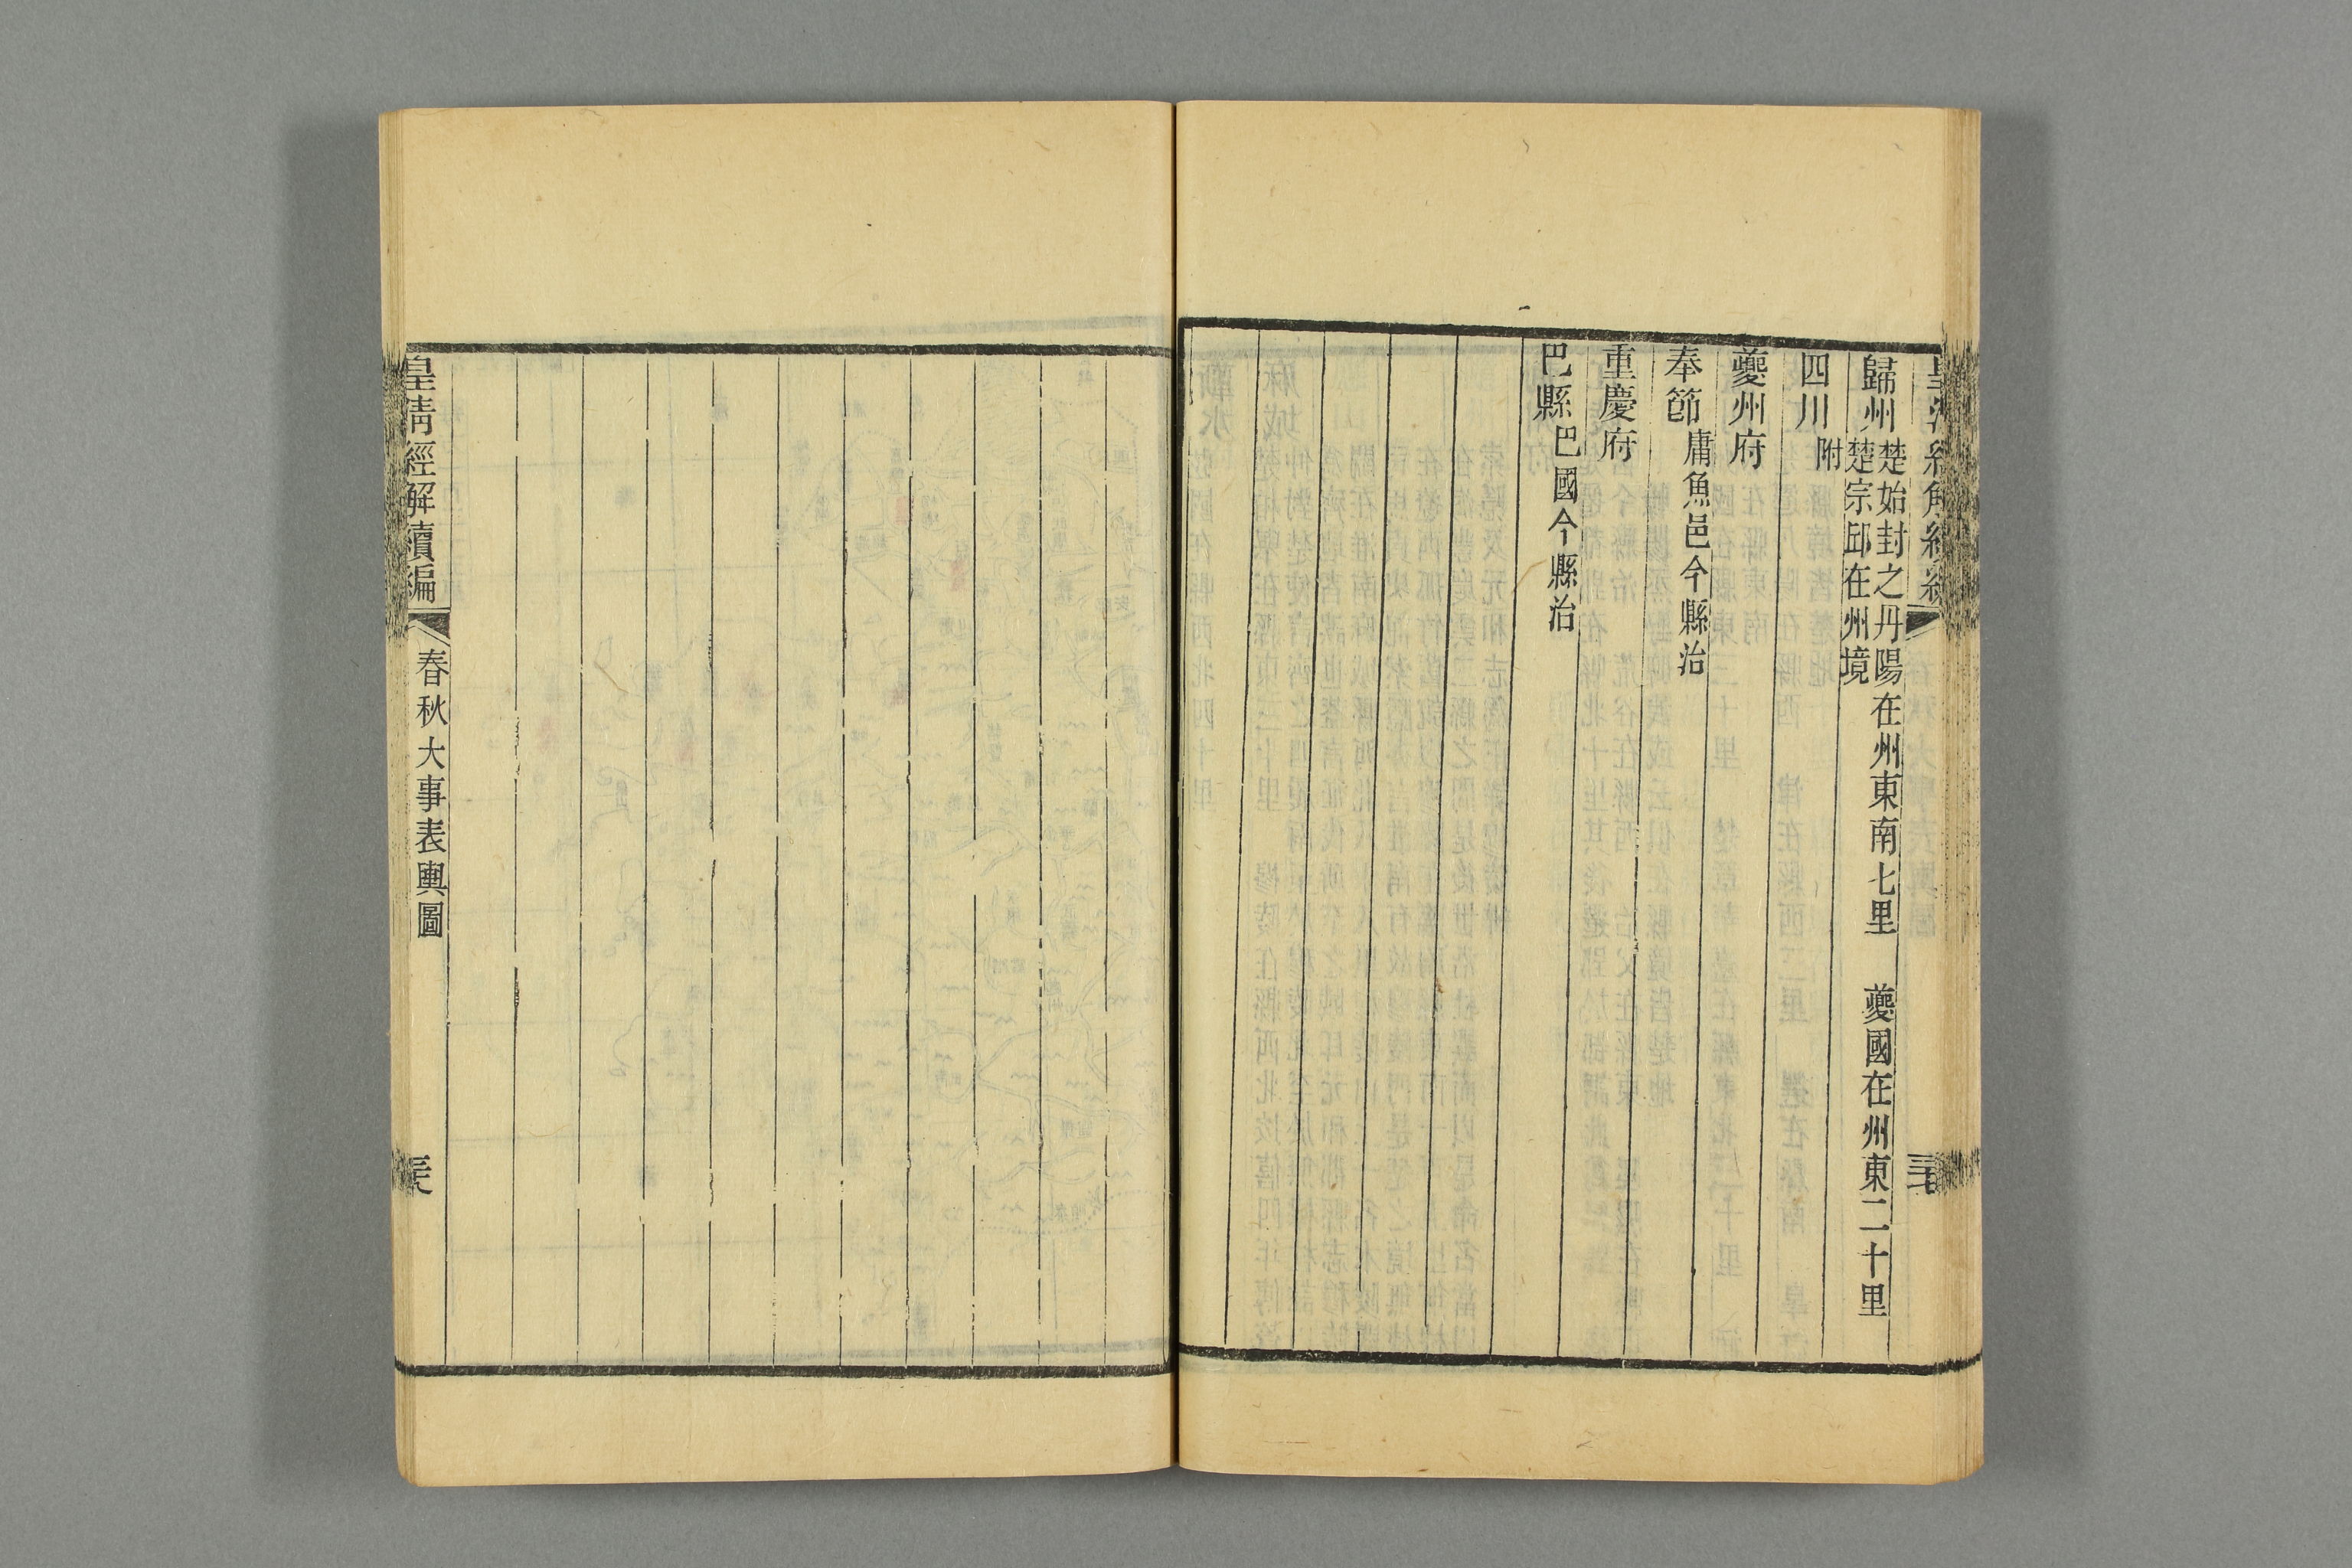 皇清經解續編
歸州 楚始封之丹陽在州東南七里 夔國在州東二十里
楚宗邱在州境
四川 附
夔州府
奉節 庸魚邑今縣治
重慶府
巴縣 巴國今縣治
皇清經解續編 春秋大事表輿圖